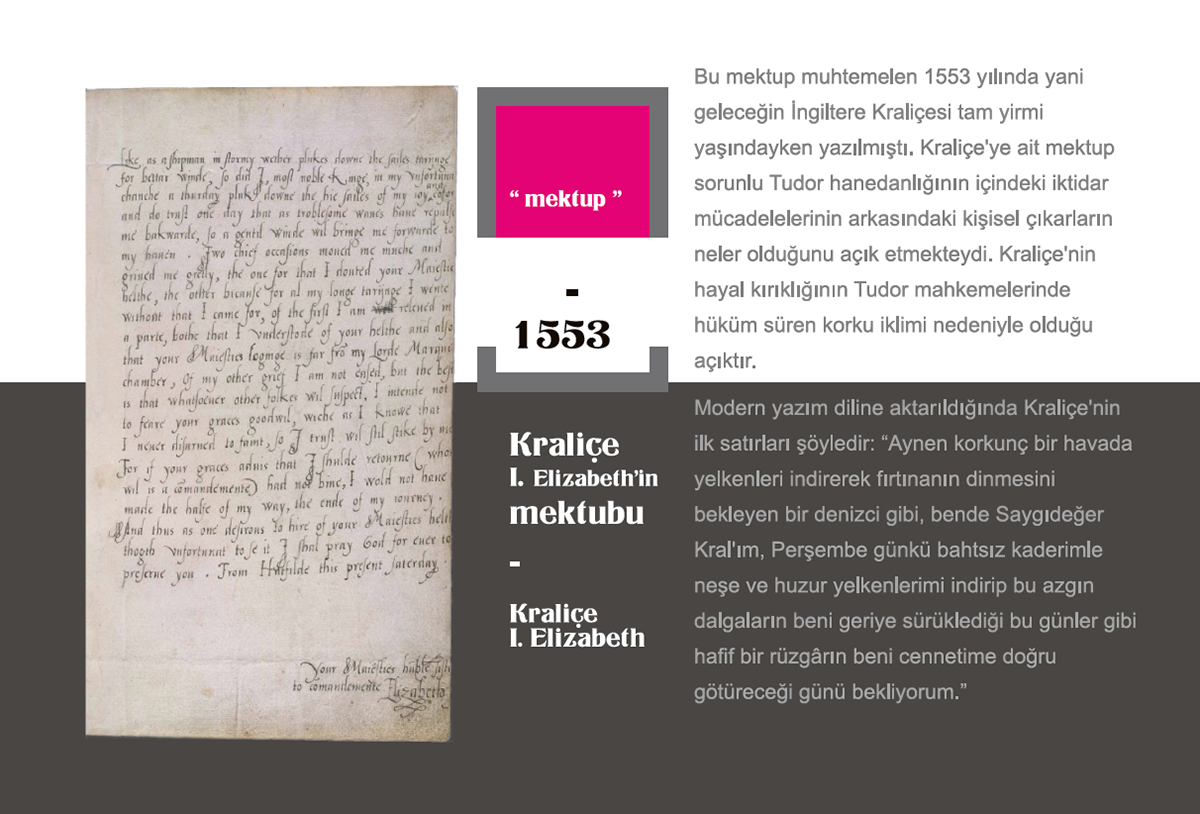 Like as a shipman in stormy wether plukes downe the sailes tarijnge
for bettar winde, so did I, most noble Kinge, in my vnfortuna
chanche a thurday pluk downe the hie sailes of my ioy and cofor
and do trust one day that as troblesome waues haue repulse
me bakwarde, so a gentil winde wil bringe me forwarde to
my hauen . Two chief occasions moued me muche and
griued me gretly, the one for that I douted your Maiesties
helthe, the other bicause for al my longe tarijnge I wente
without that I came for, of the first I am releued in
a parte, bothe that I vnderstode of your helthe and also
that your Maiesties loginge is far fro my Lorde Marques
chamber, Of my other grief I am not eased, but the best
is that whatsoeuer other folkes wil suspect, I intende not
to feare your graces goodwil, wiche as I knowe that
I neuer disarued to faint, so I trust wil stil stike by me
For if your graces aduis that I shulde retourne (whos
wil is a comandemente) had not bine, I wold not haue
made the halfe of my way, the ende of my iourney .
And thus as one desirous to hire of your Maiesties helth
thogth vnfortunat to se it I shal pray God for euer to
preserue you . From Hatfilde this present saterday
Your Maiesties huble sistar
to comandemente Elizabeth
“ mektup ”
-
1553
Kraliçe
I. Elizabeth’in
mektubu
-
Kraliçe
I. Elizabeth
Bu mektup muhtemelen 1553 yılında yani
geleceğin İngiltere Kraliçesi tam yirmi
yaşındayken yazılmıştı. Kraliçe'ye ait mektup
sorunlu Tudor hanedanlığının içindeki iktidar
mücadelelerinin arkasındaki kişisel çıkarların
neler olduğunu açık etmekteydi. Kraliçe'nin
hayal kırıklığının Tudor mahkemelerinde
hüküm süren korku iklimi nedeniyle olduğu
açıktır.
Modern yazım diline aktarıldığında Kraliçe'nin
ilk satırları şöyledir: “Aynen korkunç bir havada
yelkenleri indirerek fırtınanın dinmesini
bekleyen bir denizci gibi, bende Saygıdeğer
Kral'ım, Perşembe günkü bahtsız kaderimle
neşe ve huzur yelkenlerimi indirip bu azgın
dalgaların beni geriye sürüklediği bu günler gibi
hafif bir rüzgârın beni cennetime doğru
götüreceği günü bekliyorum.”